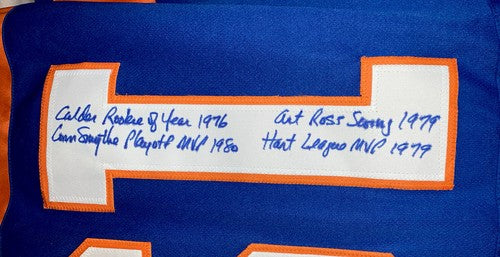 Calder Rookie of Year 1976
Conn Smythe Playoff MVP 1980
Art Ross Scoring 1979
Hart League MVP 1979